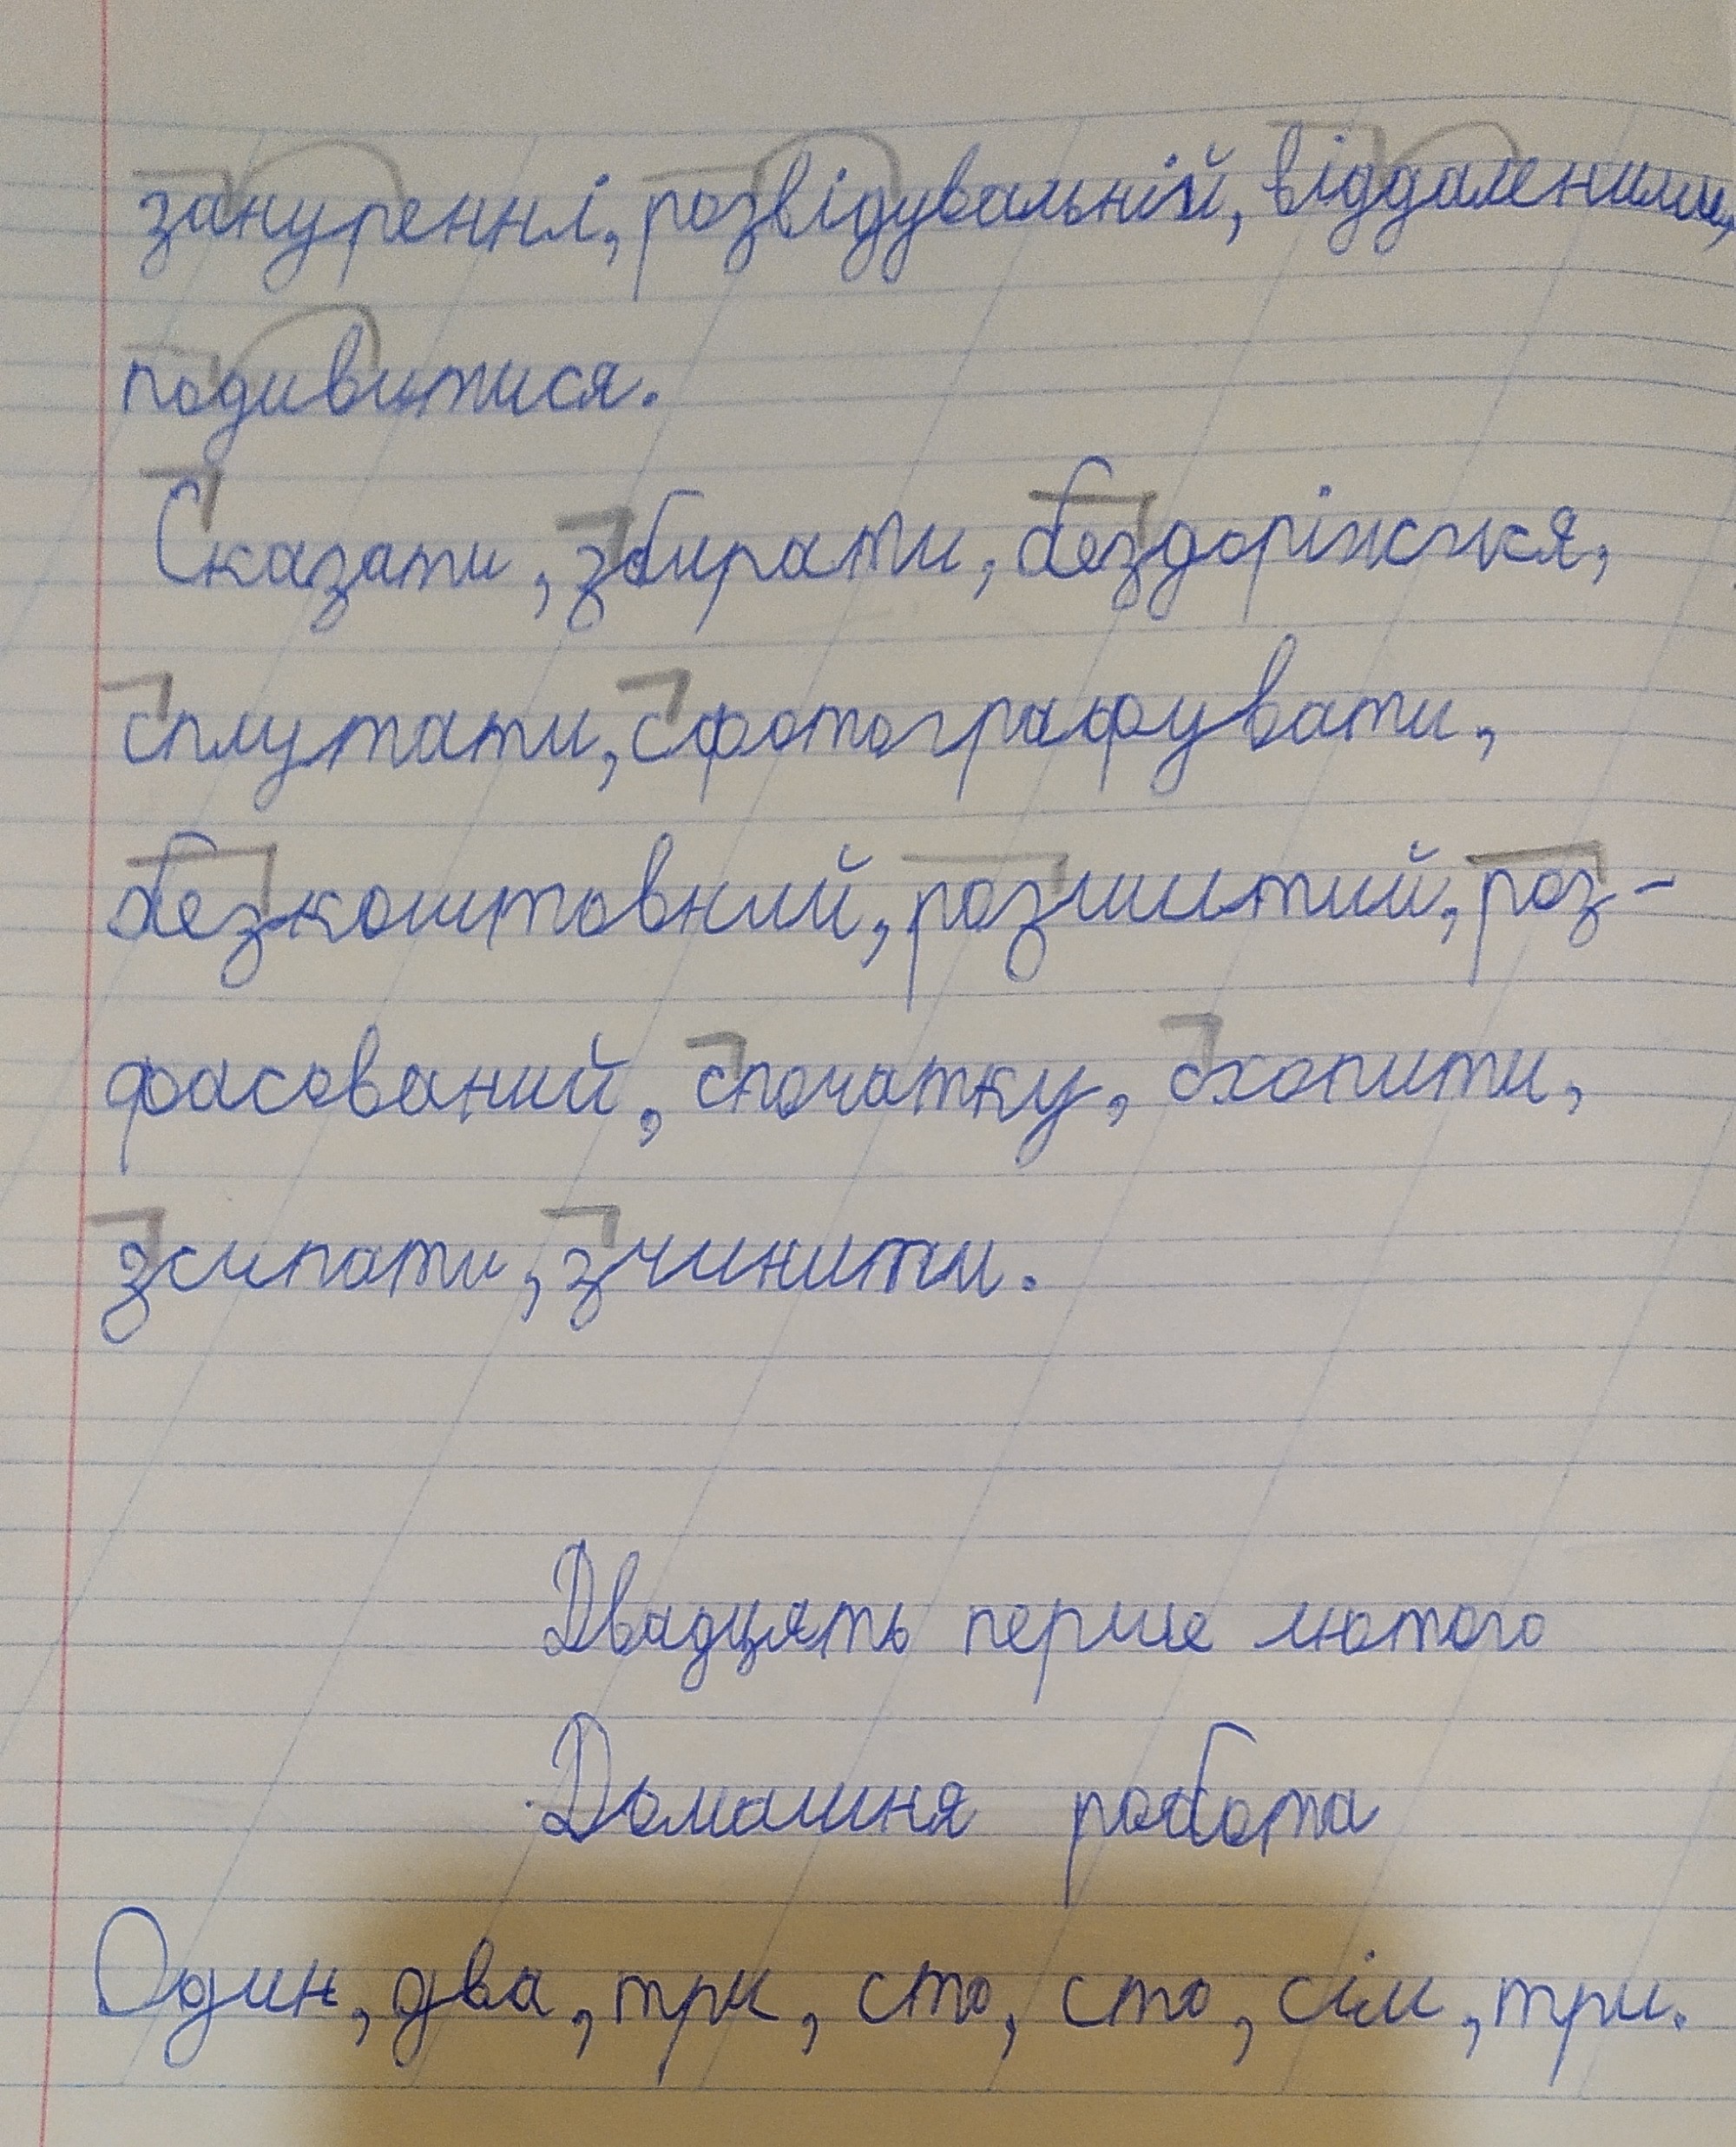 зануренні, розвідувальній, віддаленими,
подивитися.
Сказати, збирати, бездоріжжя,
сплутати, сфотографувати,
безкоштовний, розшитий, роз-
фасований, спочатку, схопити,
зсипати, зчинити.
Двадцять перше лютого
Домашня робота
Один, два, три, сто, сто, сім, три.